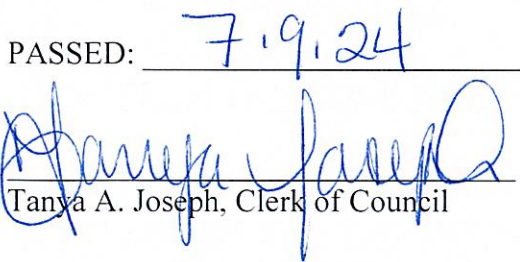 PASSED: 7.9.24
Tanya Joseph
Tanya A. Joseph, Clerk of Council